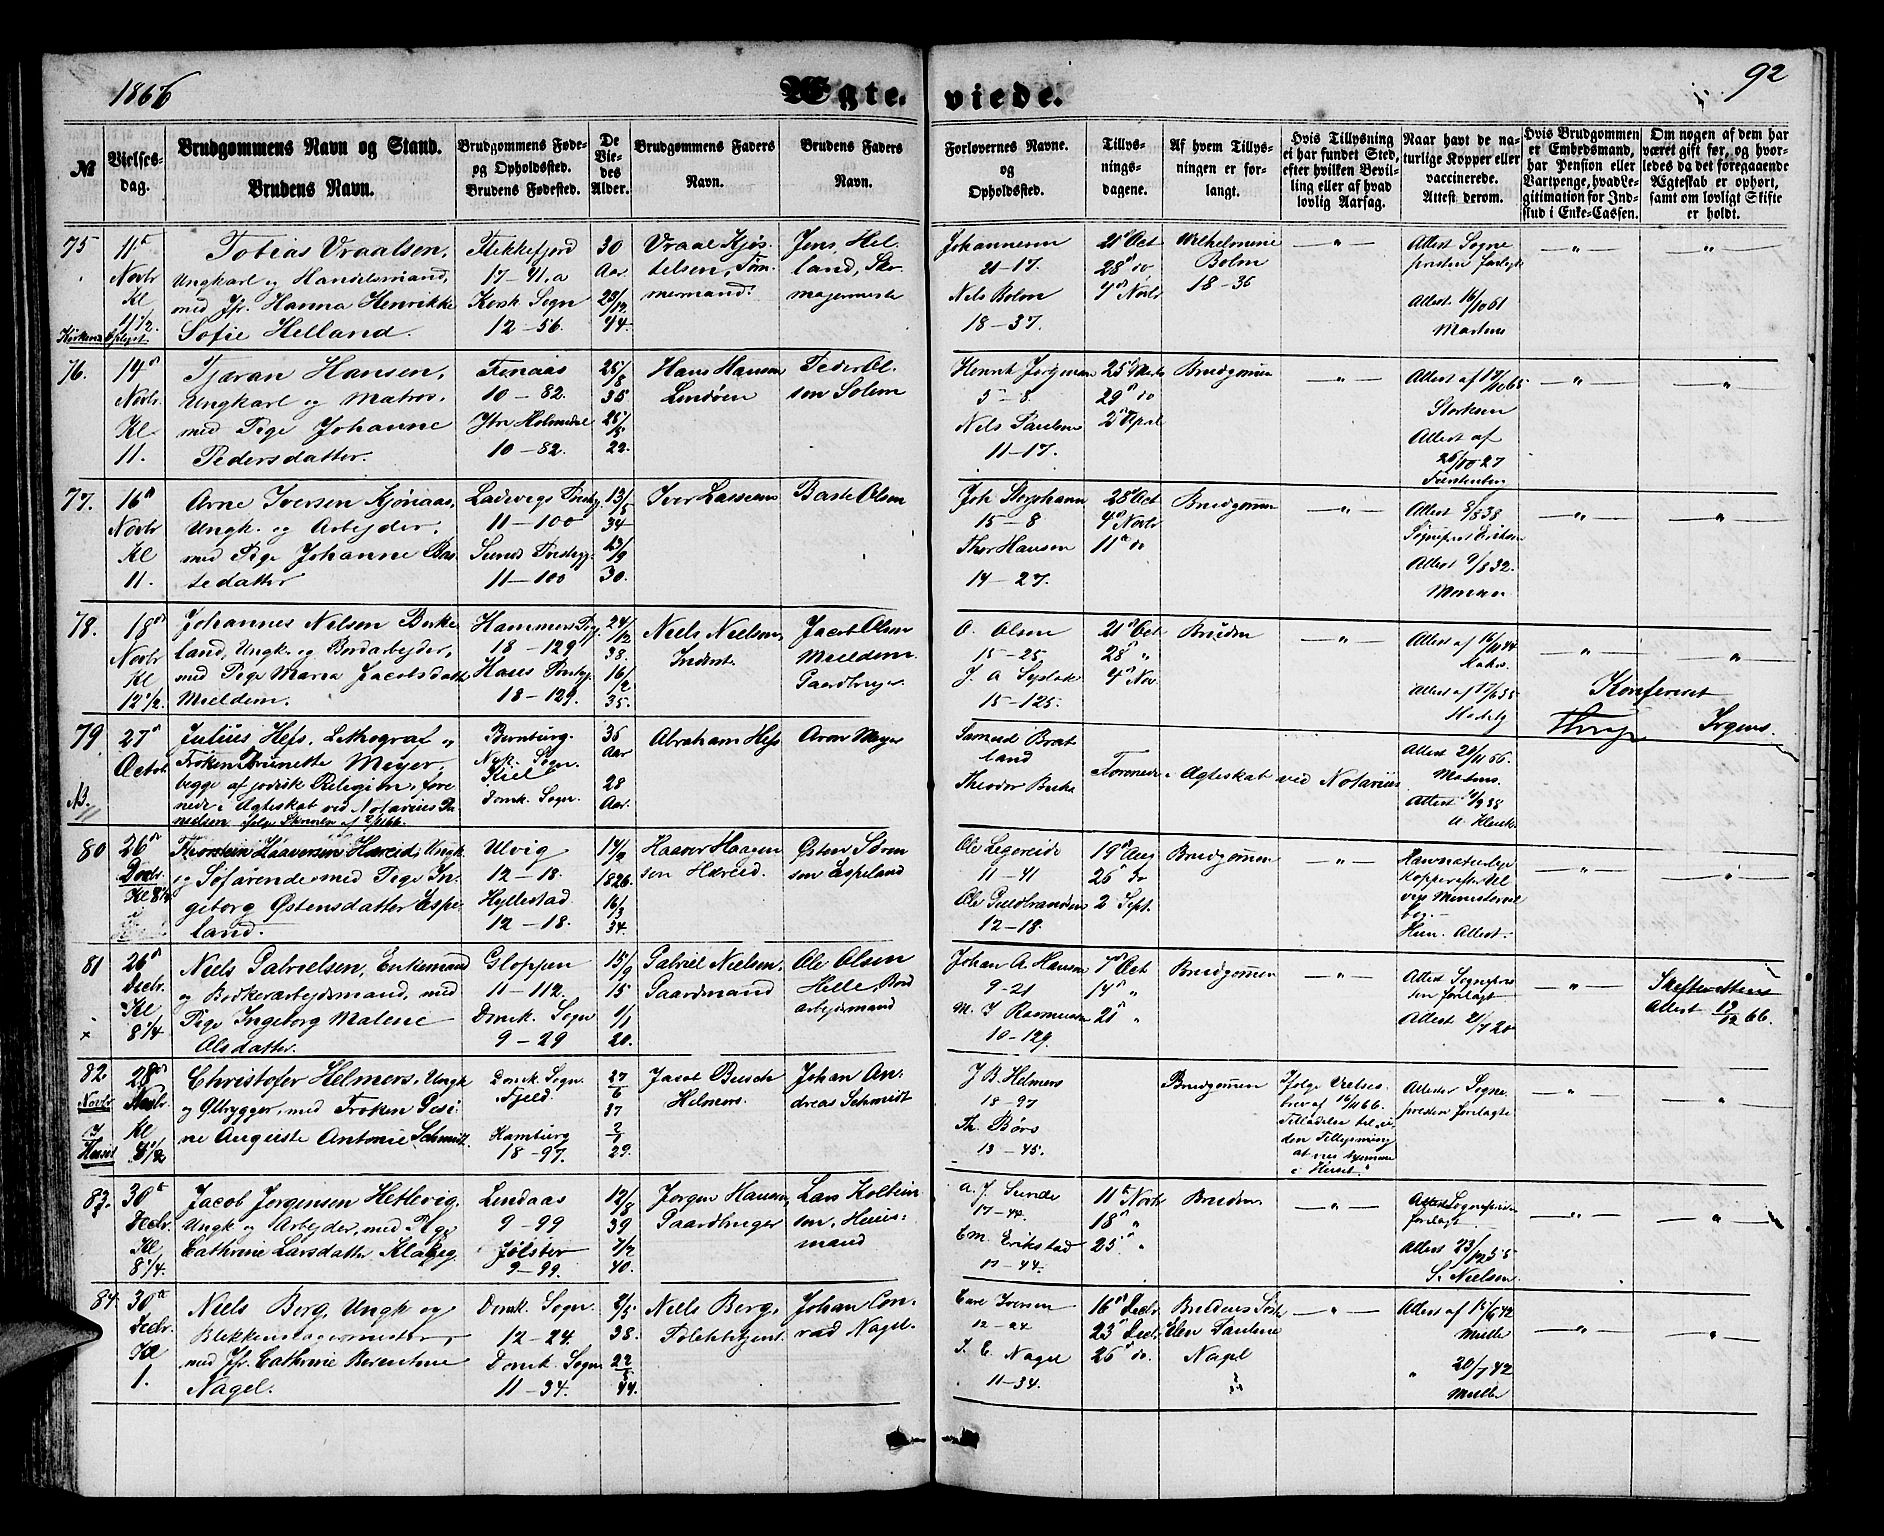 1866
Ægte-
viede.
92
№
Vielses-
dag.
Brudgommens Navn og Stand.
Brudens Navn.
Brudgommens Føde-
og Opholdssted.
Brudens Fødested.
De
Vie-
des
Alder.
Brudgommens Faders
Navn.
Brudens Faders
Navn.
Forlovernes Navne.
og
Opholdssted.
Tillys-
nings-
dagene.
Af hvem Tillys-
ningen er for-
langt.
Hvis Tillysning
ei har fundet Sted,
efter hvilken Bevil-
ling eller af hvad
lovlig Aarsag.
Naar havt de na-
turlige Kopper eller
vaccinerede.
Attest derom.
Hvis Brudgommen
er Embedsmand,
har Pension eller
Vartpenge, hvad Le-
gitimation for Ind-
skud i Enke-Cassen.
Om nogen af dem har
været gift før, og hvor-
ledes da det foregaaende
Ægteskab er ophørt,
samt om lovligt Skifte
er holdt.
75
11te
Novbr
Kl
11 1/2.
Tobias Vraalsen,
Ungkarl og Handelsmand,
med Jfr. Hanna Henrikke
Sofie Helland.
Flekkefjord
17-41,a
Korsk. Sogn
12-56.
30
Aar
23/12
44.
Vraal Kjøs-
telsen, Tøm-
mermand.
Jens Hel-
land, Sko-
magermester
21-17.
Nels Bolon
18-37.
21 Oct
28 do
4 Novbr
Wilhelmine
Bolon
18-36
Attest Sogne
presten forlagt
Attest 16/10 61
Martens
76.
14de
Novbr.
Kl
11.
Tjæran Hansen,
Ungkarl og Matros,
med Pige Johanne
Pedersdatter.
10-82.
Ytre Holmedal
10-82.
25/8
35
22.
Hans Hansen
Lindøen
Peder Ol-
sen Solem
Henrik Jørgensen
5-8
Nels Paulsen
11-17.
25 Marts
29 do
2 April
Brudgommen
Attest af
77.
16de
Novbr
Kl
11.
Arne Iversen Kjønaas,
Ungk. og Arbejder,
med Pige Johanne Bas-
tedatter
11-100
11-100
13/5
34
30.
Iver Lassesen
Baste Olsen
15-8
Thor Hansen
14-27.
28 Oct
4 Novbr
11te do
Brudgommen
Attest 8/8 38
Attest 9/8 32.
78.
18de
Novbr
Kl
12 1/2.
Johannes Nelsen Birke
land, Ungk. og Bordarbejder,
med Pige Maria Jacobsdatter
Mieldem.
18-129
18-129.
24/12
38.
16/2
35.
Niels Nielsen,
Inderst.
Jacob Olsen
Mieldem.
Gaardbruger
O. Olsen
15-25
15-125.
21 Oct
28 "
4 Nov.
Bruden
Konfereret
79
27de
Octob.
NB.
Julius Hess, Lithograf og
Frøken Brunette Meyer,
begge af jødisk Religion, fore
nede i Ægteskab ved Notarius Pu
Bernburg.
Nyk. Sogn.
Kiel
Domk. Sogn.
36
Aar
28
Aar.
Abraham Hess
Aron Meyer
Samuel Bret
land
Forenede i Ægteskab ved Notarius
Attest 20/11 66.
Irgens.
80
26de
Decbr.
Kl 8 1/4
Thorstein Haaversen Hæreid, Ungk.
og Søfarende, med Pige In-
geborg Østensdatter Espe-
land.
Ulvig
12-18.
Hyllestad
12-18.
14/2
1826.
16/3
34.
Haaver Haagen
sen Hæreid.
Østen Søren
sen Espeland
Ole Legereide
11-41
Ole Guldbrandsen
12-18.
19de Aug
26 do
2 Sept.
Brudgommen
Hun. Attest.
81
26de
Decbr.
Kl
8 1/4
Niels Gabrielsen, Enkemand
og Bødkerarbejdsmand, med
Pige Ingeborg Malene
Olsdatter.
Gloppen
11-112.
Domk. Sogn
9-29
15/9
15
1/1
20.
Gabriel Nielsen,
Gaardmand
Ole Olsen
Helle Bord
arbejdsmand
Johan A. Hansen
9-21
M. J. Rasmussen
10-129.
7de Oct
14 "
21 "
Brudgommen
Attest Sognepres
ten forlagt
Attest 21/7 20
Skifterettens
Attest 19/12 66.
82.
Novbr
i
Huset
28de
Novbr
Kl
8 1/2
Christofer Helmers, Ungk
og Ølbrygger, med Frøken Gesi-
ne Auguste Antonie Schmidt
Domk. Sogn
Fjeld
Hamburg
18-97.
27/6
37
2/1
29.
Jacob Busch
Helmers.
Johan An-
dreas Schmidt
J. B. Helmers
18-97
Th. Børs
13-45.
Brudgommen
Ifølge Vielses
brev af 16/11 66.
Tilladelse til u
den Tillysning
i Huset.
Attester Sogne
presten forlagte
83.
30te
Decbr.
Kl
8 1/4.
Jacob Jørgensen Hetlevig,
Ungk. og Arbejder, med Pige
Cathrine Larsdatter Klakeg
Lindaas
9-99
Jølster
9-99.
12/8
39
7/7
40.
Jørgen Hansen,
Gaardbruger
Lars Kolbein
sen, Huus-
mand
A. J. Sunde
17-44.
Em. Erikstad
17-44.
11te Novbr
18 "
25 "
Bruden
forlagt
Attest 23/12 55
S. Nielsen
84.
30te
Decbr.
Kl
1.
Niels Berg, Ungk og
Blikkenslagermester,
med Jfr. Cathrine Berentine
Nagel.
Domk. Sogn
12-24.
Domk. Sogn
11-34.
38.
44.
Niels Berg,
Politibetjent
Johan Con-
rad Nagel
Carl Iversen
12-24
J. C. Nagel
11-34.
16 Decbr
23 Decbr
26 do.
Brudens Søst
Elen Pauline
Nagel
Attest af 15/6 42
Müller
" 20/7 42
Müller